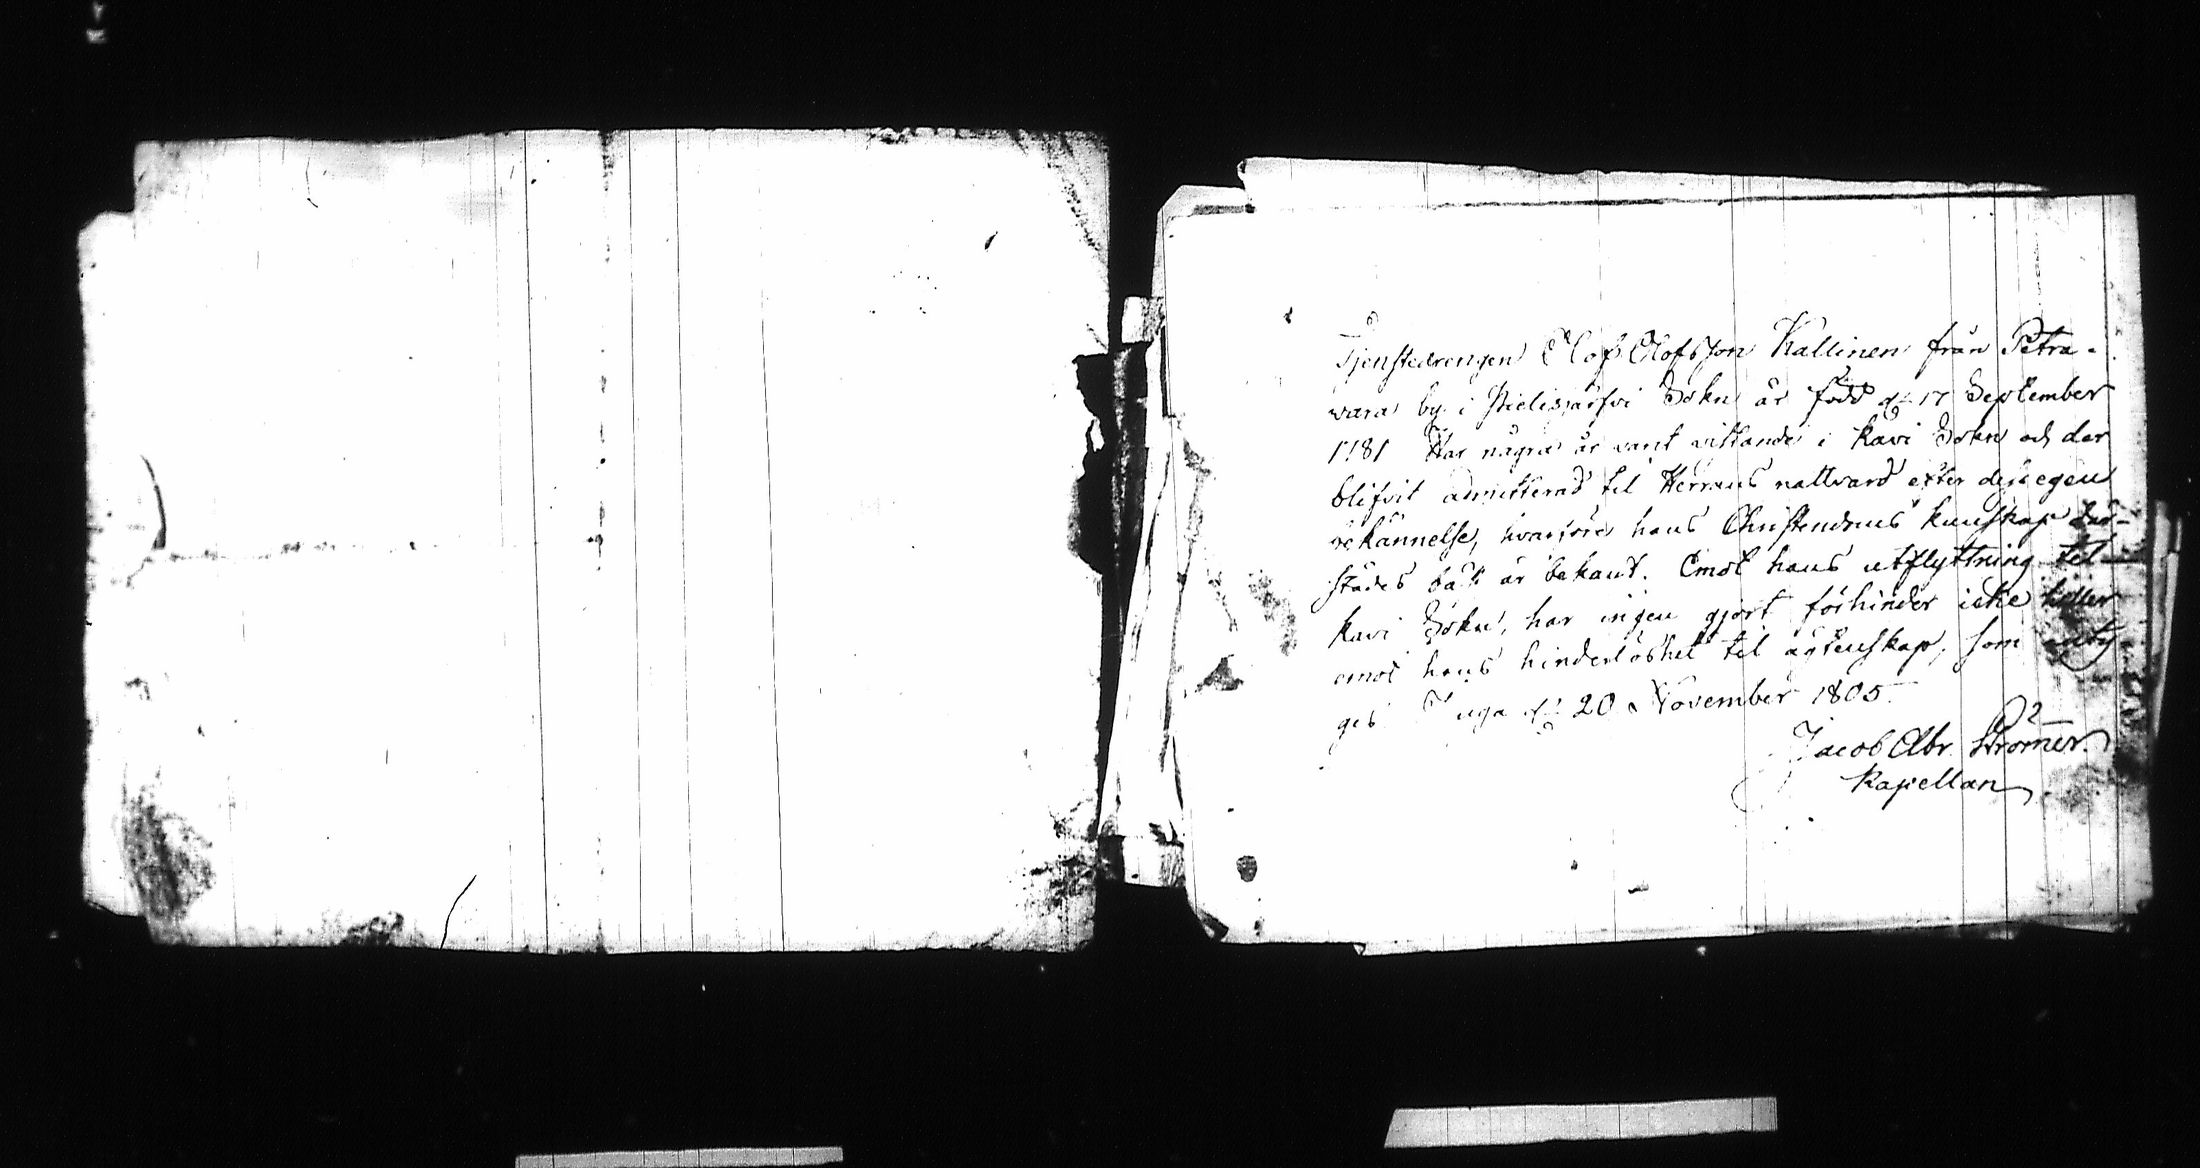 Tjenstedrengen Olof Olofsson Kallinen från Petra-
vara by i Pielisjärfvi Sokn är född d. 17 September
1781 Har några år varit vistande i Kavi Sokn och der
blifvit admitterad til Herrans nattvard efter des egen
bekännelse, hvarföre hans Christendoms kunskap der-
städes bäst är bekant. Emot hans utflyttning til
Kavi Sokn, har ingen gjort förhinder icke heller
emot hans hinderlöshet til ägtenskap, som
ges Juga d. 20 November 1805.
Jacob Abr. Stromer.
Kapellan